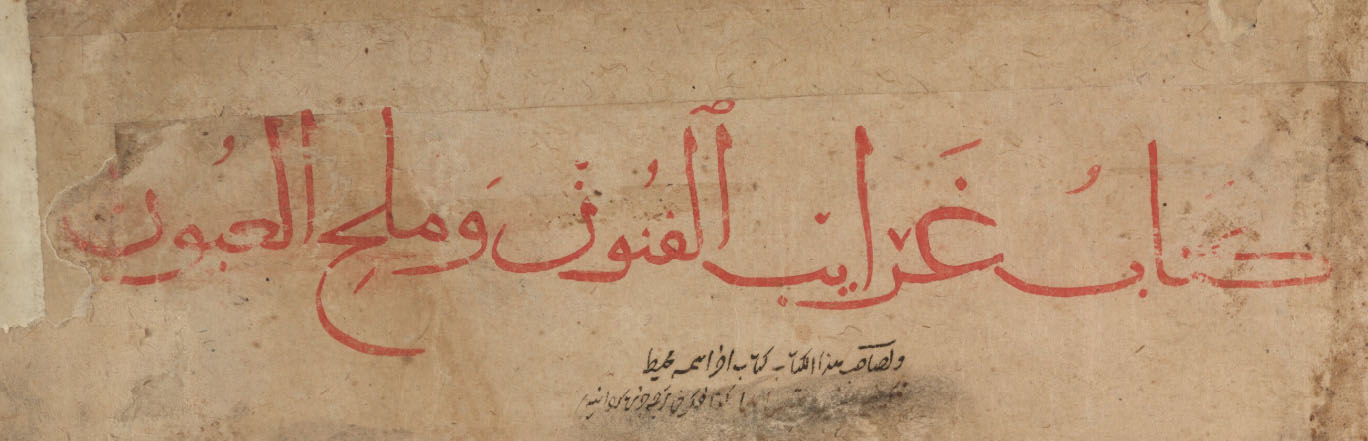 كتابُ غَرايب الفُنون وَملحِ العُيون
ولصاحب هذا الكتاب كتاب اخر اسمه محيط